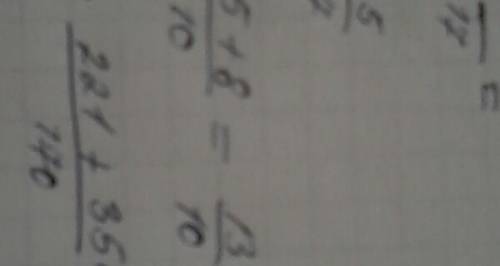 17 =
5
5+8/10 = 13/10
221 + 35/170